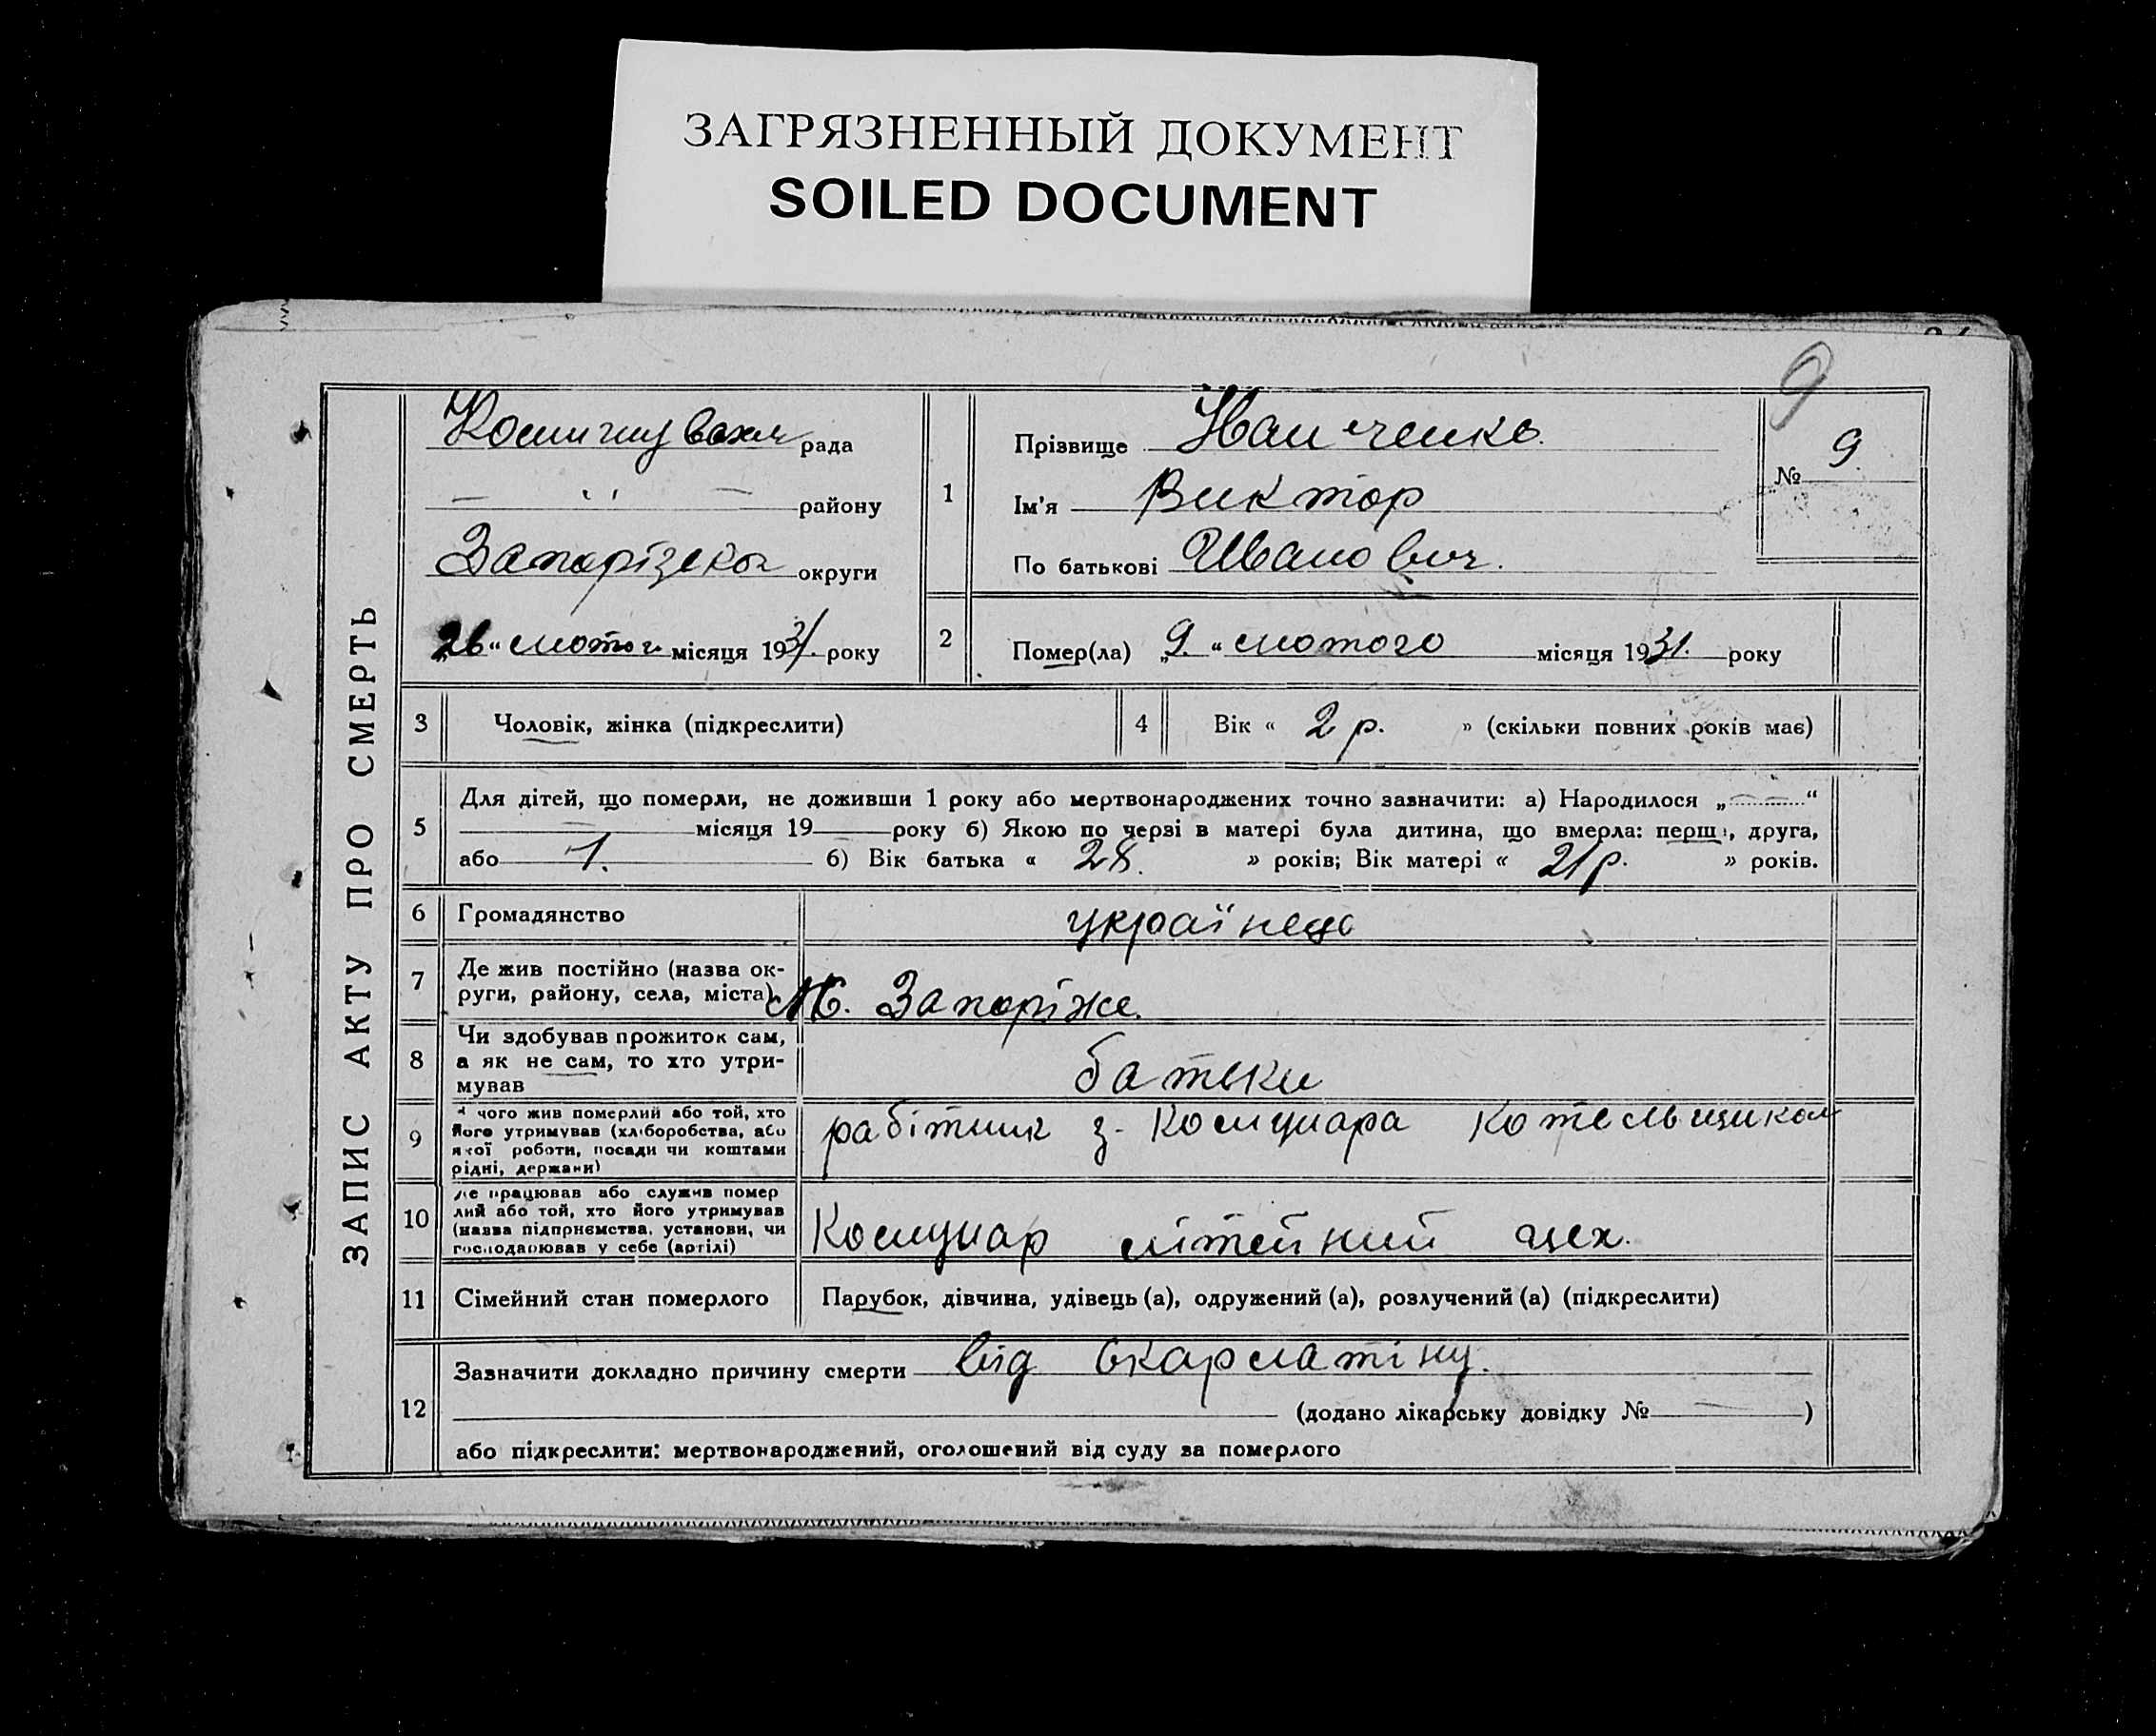 ЗАГРЯЗНЕННЫЙ ДОКУМЕНТ
SOILED DOCUMENT
9
ЗАПИС АКТУ ПРО СМЕРТЬ
рада
— '' — району
Запорізька округи
„26“ лютого місяця 1931. року
1
Прізвище
Ім'я Виктор
По батькові Иванович.
№ 9.
2 Помер(ла) „9.“ лютого місяця 1931. року
3 Чоловік, жінка (підкреслити)
4 Вік « 2 р. » (скільки повних років має)
5 Для дітей, що померли, не доживши 1 року або мертвонароджених точно зазначити: а) Народилося „—“
— місяця 19 року б) Якою по черзі в матері була дитина, що вмерла: перш, друга,
або 1. б) Вік батька « 28. » років; Вік матері « 21 р. » років.
6 Громадянство українець
7 Де жив постійно (назва ок-
руги, району, села, міста) М. Запоріже.
8 Чи здобував прожиток сам,
а як не сам, то хто утри-
мував батьки
9 З чого жив померлий або той, хто
його утримував (хліборобства, або
якої роботи, посади чи коштами
рідні, держави) рабітник з. Комунара Котельщиком
10 Де працював або служив помер
лий або той, хто його утримував
(назва підприємства, установи, чи
господарював у себе (артілі) Комунар літейний цех.
11 Сімейний стан померлого Парубок, дівчина, удівець (а), одружений (а), розлучений (а) (підкреслити)
12 Зазначити докладно причину смерти від скарлатіну.
(додано лікарську довідку № — )
або підкреслити: мертвонароджений, оголошений від суду за померлого